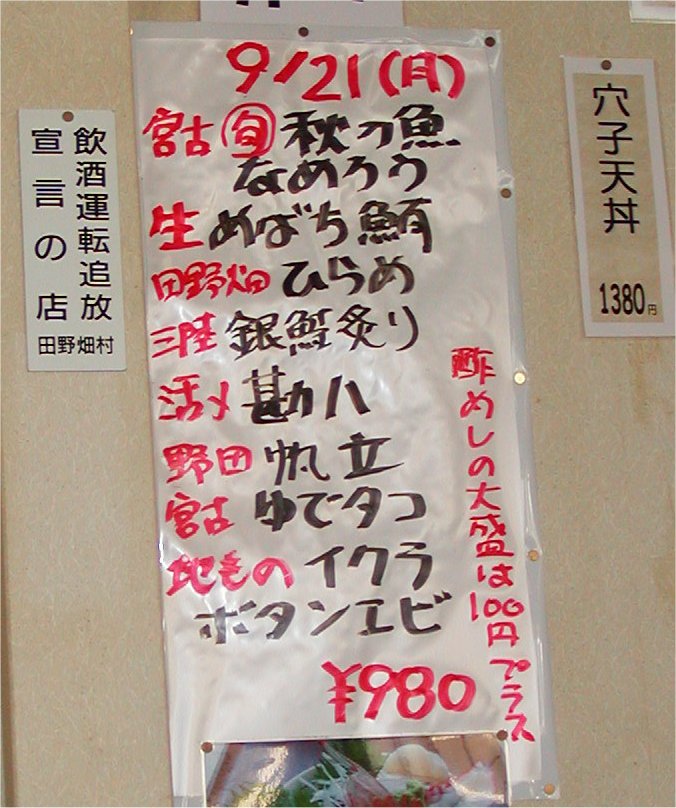 9/21(月)
宮古 旬 秋の魚
なめろう
生めばち鮪
田野畑ひらめ
三陸 銀鮭炙り
活〆 勘八
野田 帆立
宮古 ゆでタコ
地もの イクラ
ボタンエビ
¥980
酢めしの大盛は100円プラス
飲酒運転追放
宣言の店
田野畑村
穴子天丼
1380円